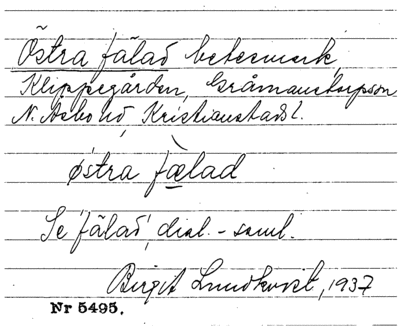 Östra fälad betesmark,
Klippegården, Gråmanstorpssn
N. Åsbo hd Kristianstads l.
östra fælad
Se 'fälad', dial.-saml.
Birgit Lundkvist, 1937
Nr 5495.